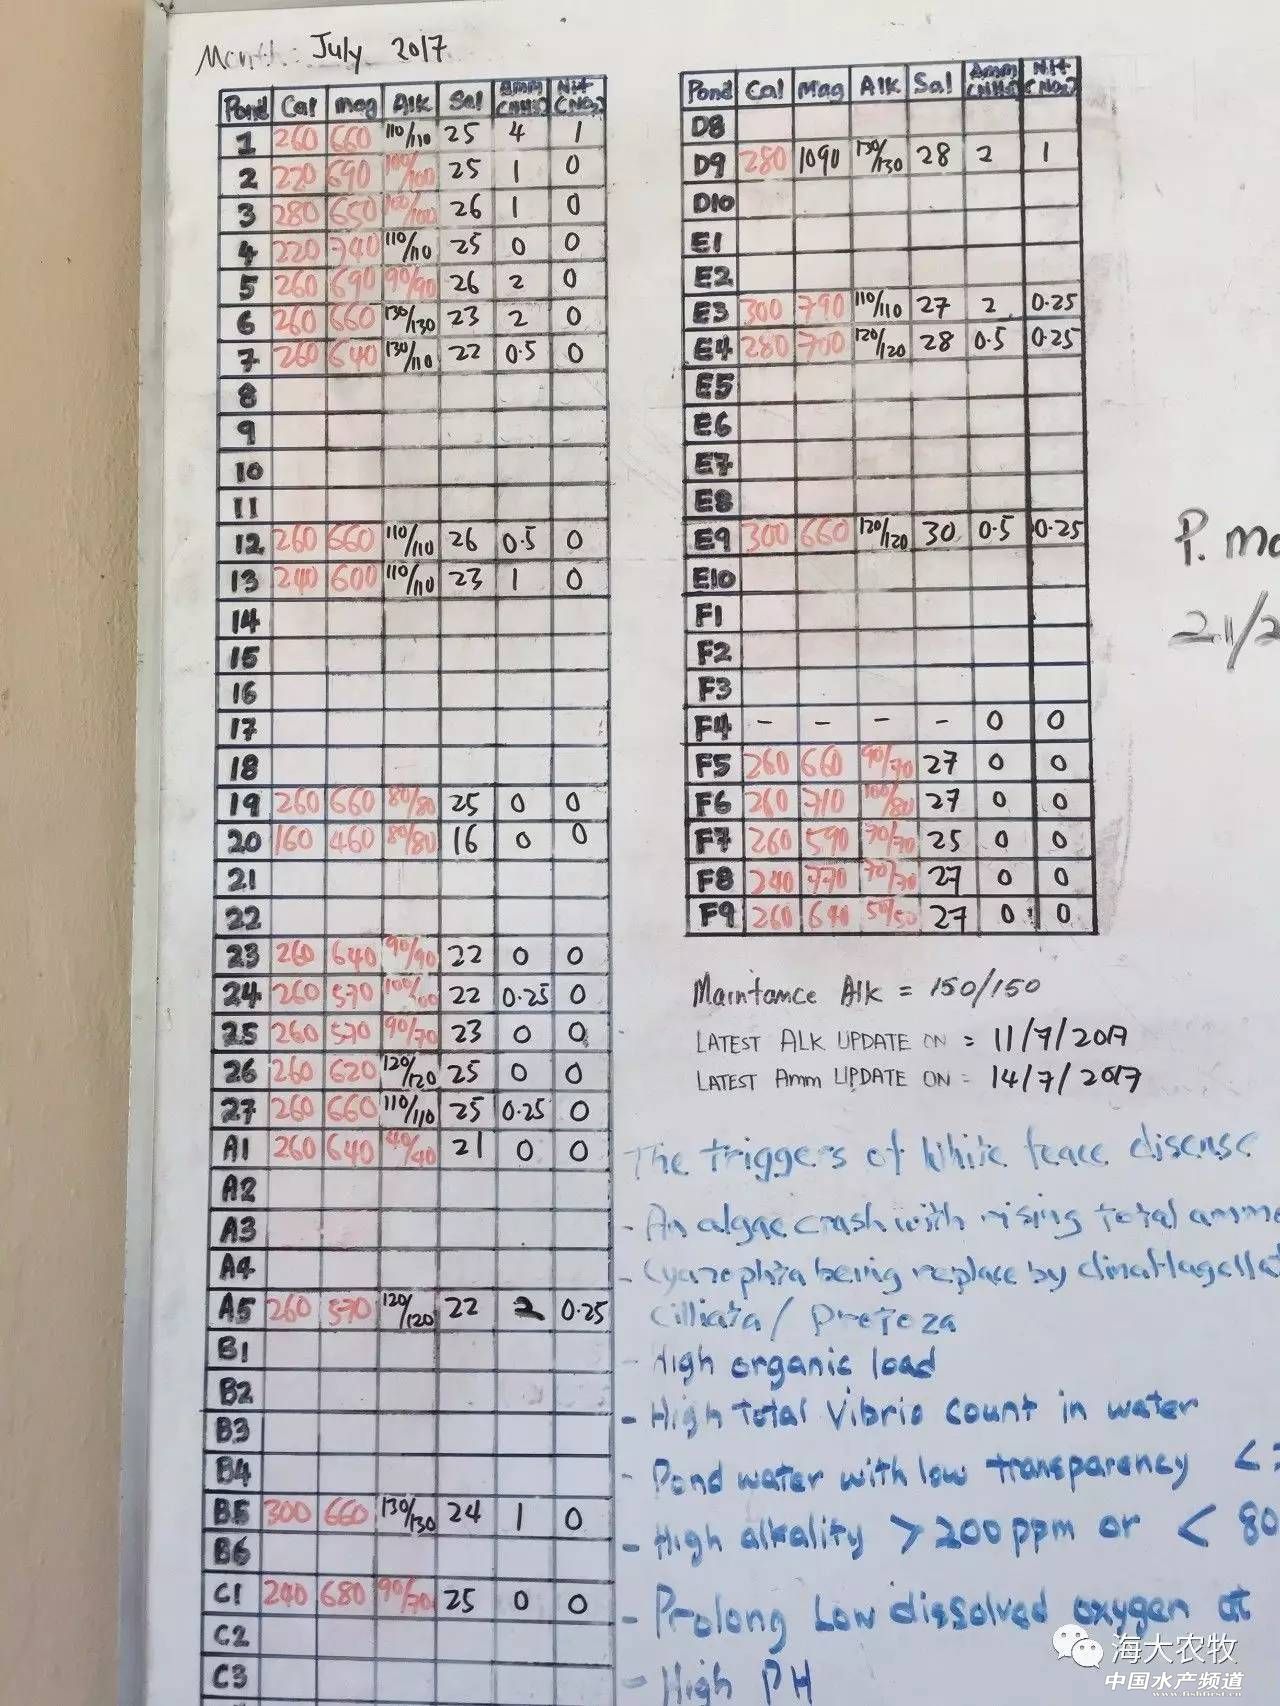 Month: July 2017
Pond Cal Mag Alk Sal Amm (NH3) Nit (NO2)
1 260 660 110/110 25 4 1
2 220 690 100/100 25 1 0
3 280 650 100/100 26 1 0
4 220 740 110/110 25 0 0
5 260 690 90/90 26 2 0
6 260 660 130/130 23 2 0
7 260 640 130/110 22 0.5 0
8
9
10
11
12 260 660 110/110 26 0.5 0
13 240 600 110/110 23 1 0
14
15
16
17
18
19 260 660 80/80 25 0 0
20 160 460 80/80 16 0 0
21
22
23 260 640 90/90 22 0 0
24 260 570 100/100 22 0.25 0
25 260 570 90/70 23 0 0
26 260 620 120/120 25 0 0
27 260 660 110/110 25 0.25 0
A1 260 640 40/40 21 0 0
A2
A3
A4
A5 260 570 120/120 22 2 0.25
B1
B2
B3
B4
B5 300 660 130/130 24 1 0
B6
C1 240 680 90/70 25 0 0
C2
C3
Pond Cal Mag Alk Sal Amm (NH3) Nit (NO2)
D8
D9 280 1090 130/130 28 2 1
D10
E1
E2
E3 300 790 110/110 27 2 0.25
E4 280 700 120/120 28 0.5 0.25
E5
E6
E7
E8
E9 300 660 120/120 30 0.5 0.25
E10
F1
F2
F3
F4 - - - - 0 0
F5 260 660 90/70 27 0 0
F6 260 710 100/80 27 0 0
F7 260 590 70/70 25 0 0
F8 240 770 70/70 27 0 0
F9 260 640 50/50 27 0 0
P. mo
21/2
Maintance Alk = 150/150
LATEST ALK UPDATE ON = 11/7/2017
LATEST Amm UPDATE ON = 14/7/2017
The triggers of White feace disease
- An algae crash with rising total ammo
- Cyanophta being replace by dinaflagellat
Cilliata / Protoza
- High organic load
- High Total Vibrio count in water
- Pond water with low transparency <
- High alkality > 200 ppm or < 80
- Prolong Low dissolved oxygen at
- High PH
海大农牧
中国水产频道
www.fishfirst.cn